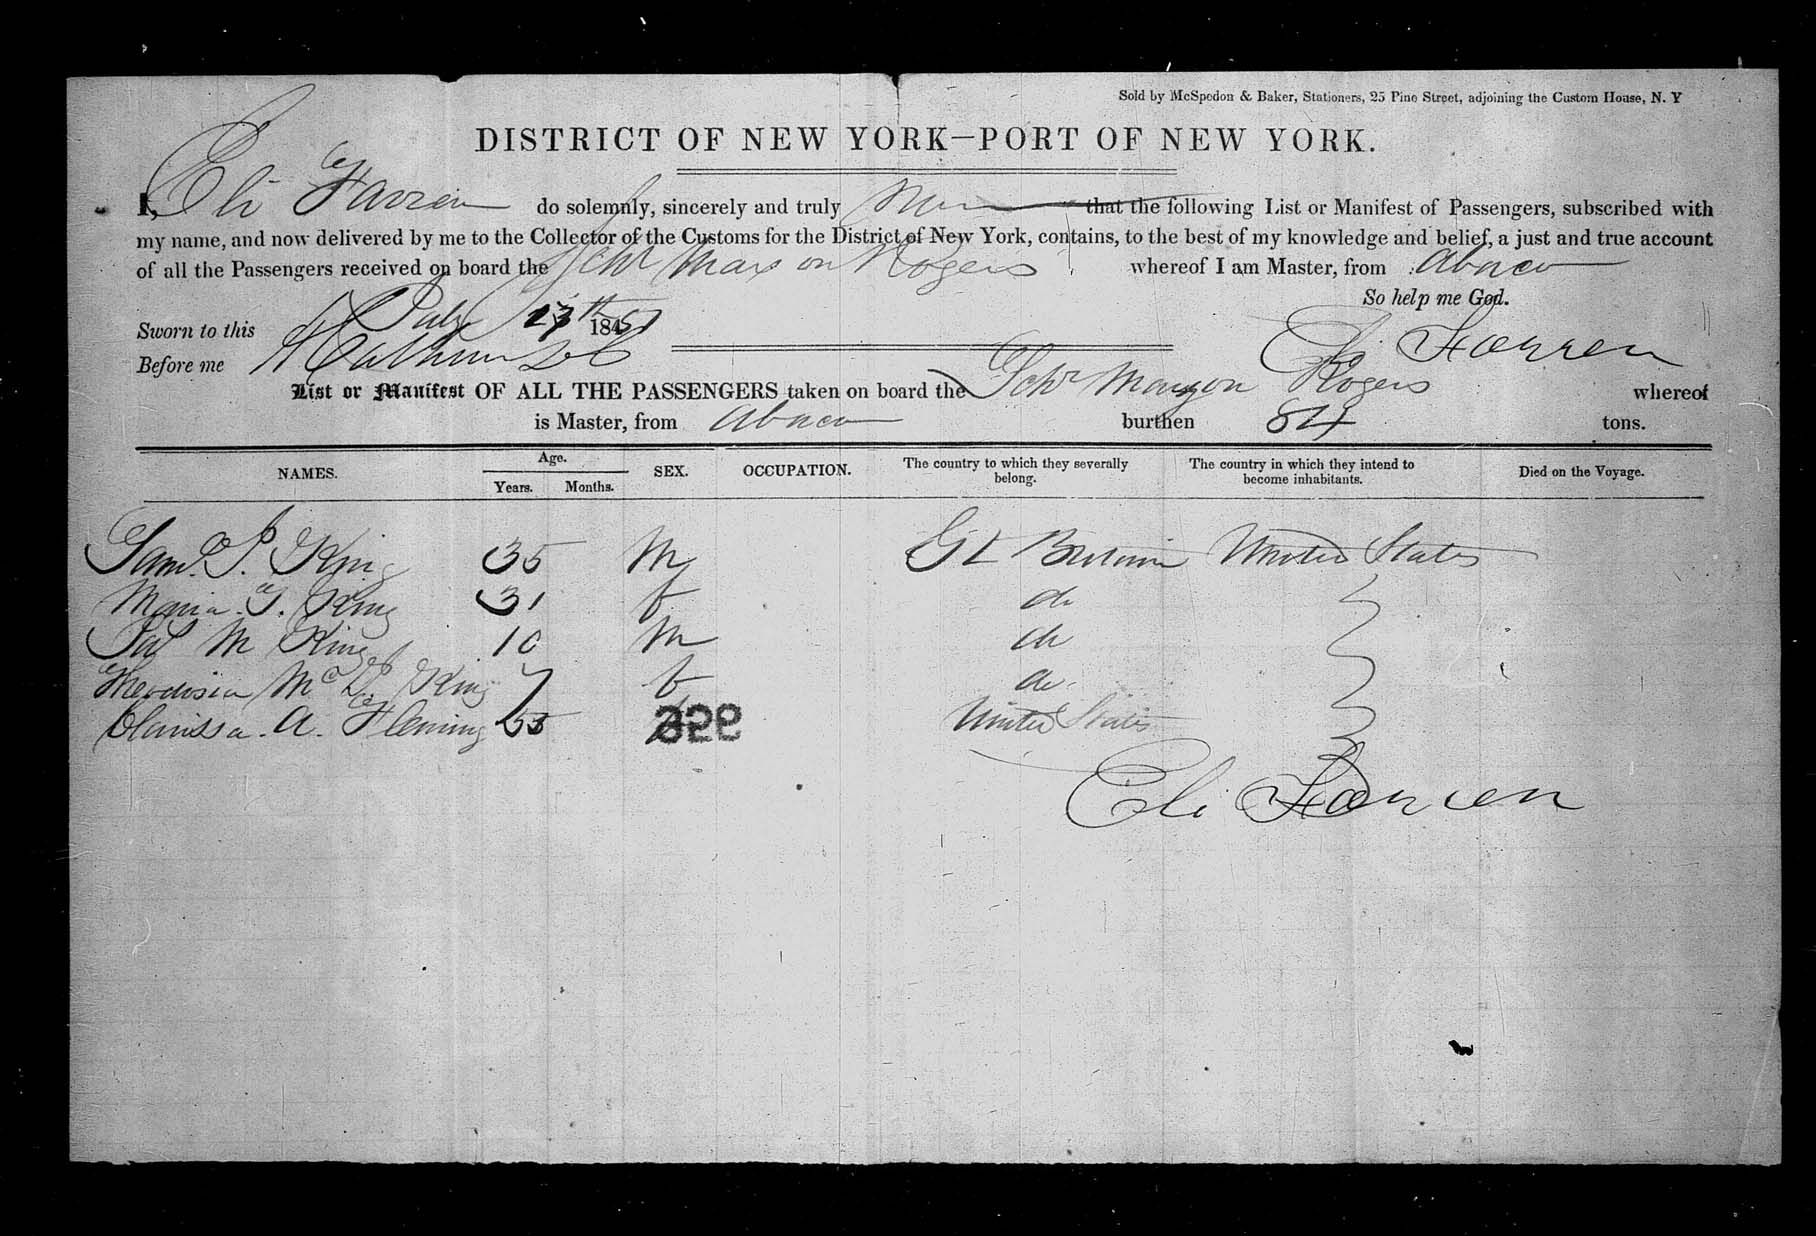 Sold by McSpedon & Baker, Stationers, 25 Pine Street, adjoining the Custom House, N. Y
DISTRICT OF NEW YORK—PORT OF NEW YORK.
I, Eli Farren do solemnly, sincerely and truly that the following List or Manifest of Passengers, subscribed with
my name, and now delivered by me to the Collector of the Customs for the District of New York, contains, to the best of my knowledge and belief, a just and true account
of all the Passengers received on board the Schr Maxson Rogers whereof I am Master, from Abaco
So help me God.
Sworn to this July 184
Before me
Eli Farren
List or Manifest OF ALL THE PASSENGERS taken on board the Schr Rogers whereof
is Master, from Abaco burthen 84 tons.
NAMES. Age. SEX. OCCUPATION. The country to which they severally belong. The country in which they intend to become inhabitants. Died on the Voyage.
Years. Months.
Saml. S. King 35 M Gt Britain United States
Maria T. King 31 f do
M King 10 M do
Theodosia King 7 f do
Clarissa. A. Fleming 55 United States
Eli Farren